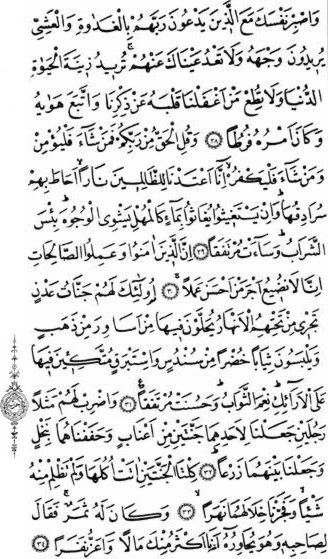 وَاصْبِرْ نَفْسَكَ مَعَ الَّذِينَ يَدْعُونَ رَبَّهُمْ بِالْغَدٰوةِ وَالْعَشِيِّ
يُرِيدُونَ وَجْهَهُ وَلَا تَعْدُ عَيْنَاكَ عَنْهُمْ تُرِيدُ زِينَةَ الْحَيٰوةِ
الدُّنْيَا وَلَا تُطِعْ مَنْ اَغْفَلْنَا قَلْبَهُ عَنْ ذِكْرِنَا وَاتَّبَعَ هَوٰيهُ
وَكَانَ اَمْرُهُ فُرُطًا ﴿٢٨﴾ وَقُلِ الْحَقُّ مِنْ رَبِّكُمْ فَمَنْ شَاءَ فَلْيُؤْمِنْ
وَمَنْ شَاءَ فَلْيَكْفُرْ اِنَّا اَعْتَدْنَا لِلظَّالِمِينَ نَارًا اَحَاطَ بِهِمْ
سُرَادِقُهَا وَاِنْ يَسْتَغِيثُوا يُغَاثُوا بِمَاءٍ كَالْمُهْلِ يَشْوِى الْوُجُوهَ بِئْسَ
الشَّرَابُ وَسَاءَتْ مُرْتَفَقًا ﴿٢٩﴾ اِنَّ الَّذِينَ اٰمَنُوا وَعَمِلُوا الصَّالِحَاتِ
اِنَّا لَا نُضِيعُ اَجْرَ مَنْ اَحْسَنَ عَمَلًا ﴿٣٠﴾ اُولٰئِكَ لَهُمْ جَنَّاتُ عَدْنٍ
تَجْرِى مِنْ تَحْتِهِمُ الْاَنْهَارُ يُحَلَّوْنَ فِيهَا مِنْ اَسَاوِرَ مِنْ ذَهَبٍ
وَيَلْبَسُونَ ثِيَابًا خُضْرًا مِنْ سُنْدُسٍ وَاِسْتَبْرَقٍ مُتَّكِـِٔينَ فِيهَا
عَلَى الْاَرَائِكِ نِعْمَ الثَّوَابُ وَحَسُنَتْ مُرْتَفَقًا ﴿٣١﴾ وَاضْرِبْ لَهُمْ مَثَلًا
رَجُلَيْنِ جَعَلْنَا لِاَحَدِهِمَا جَنَّتَيْنِ مِنْ اَعْنَابٍ وَحَفَفْنَاهُمَا بِنَخْلٍ
وَجَعَلْنَا بَيْنَهُمَا زَرْعًا ﴿٣٢﴾ كِلْتَا الْجَنَّتَيْنِ اٰتَتْ اُكُلَهَا وَلَمْ تَظْلِمْ مِنْهُ
شَيْـًٔا وَفَجَّرْنَا خِلَالَهُمَا نَهَرًا ﴿٣٣﴾ وَكَانَ لَهُ ثَمَرٌ فَقَالَ
لِصَاحِبِهِ وَهُوَ يُحَاوِرُهُ اَنَا اَكْثَرُ مِنْكَ مَالًا وَاَعَزُّ نَفَرًا ﴿٣٤﴾